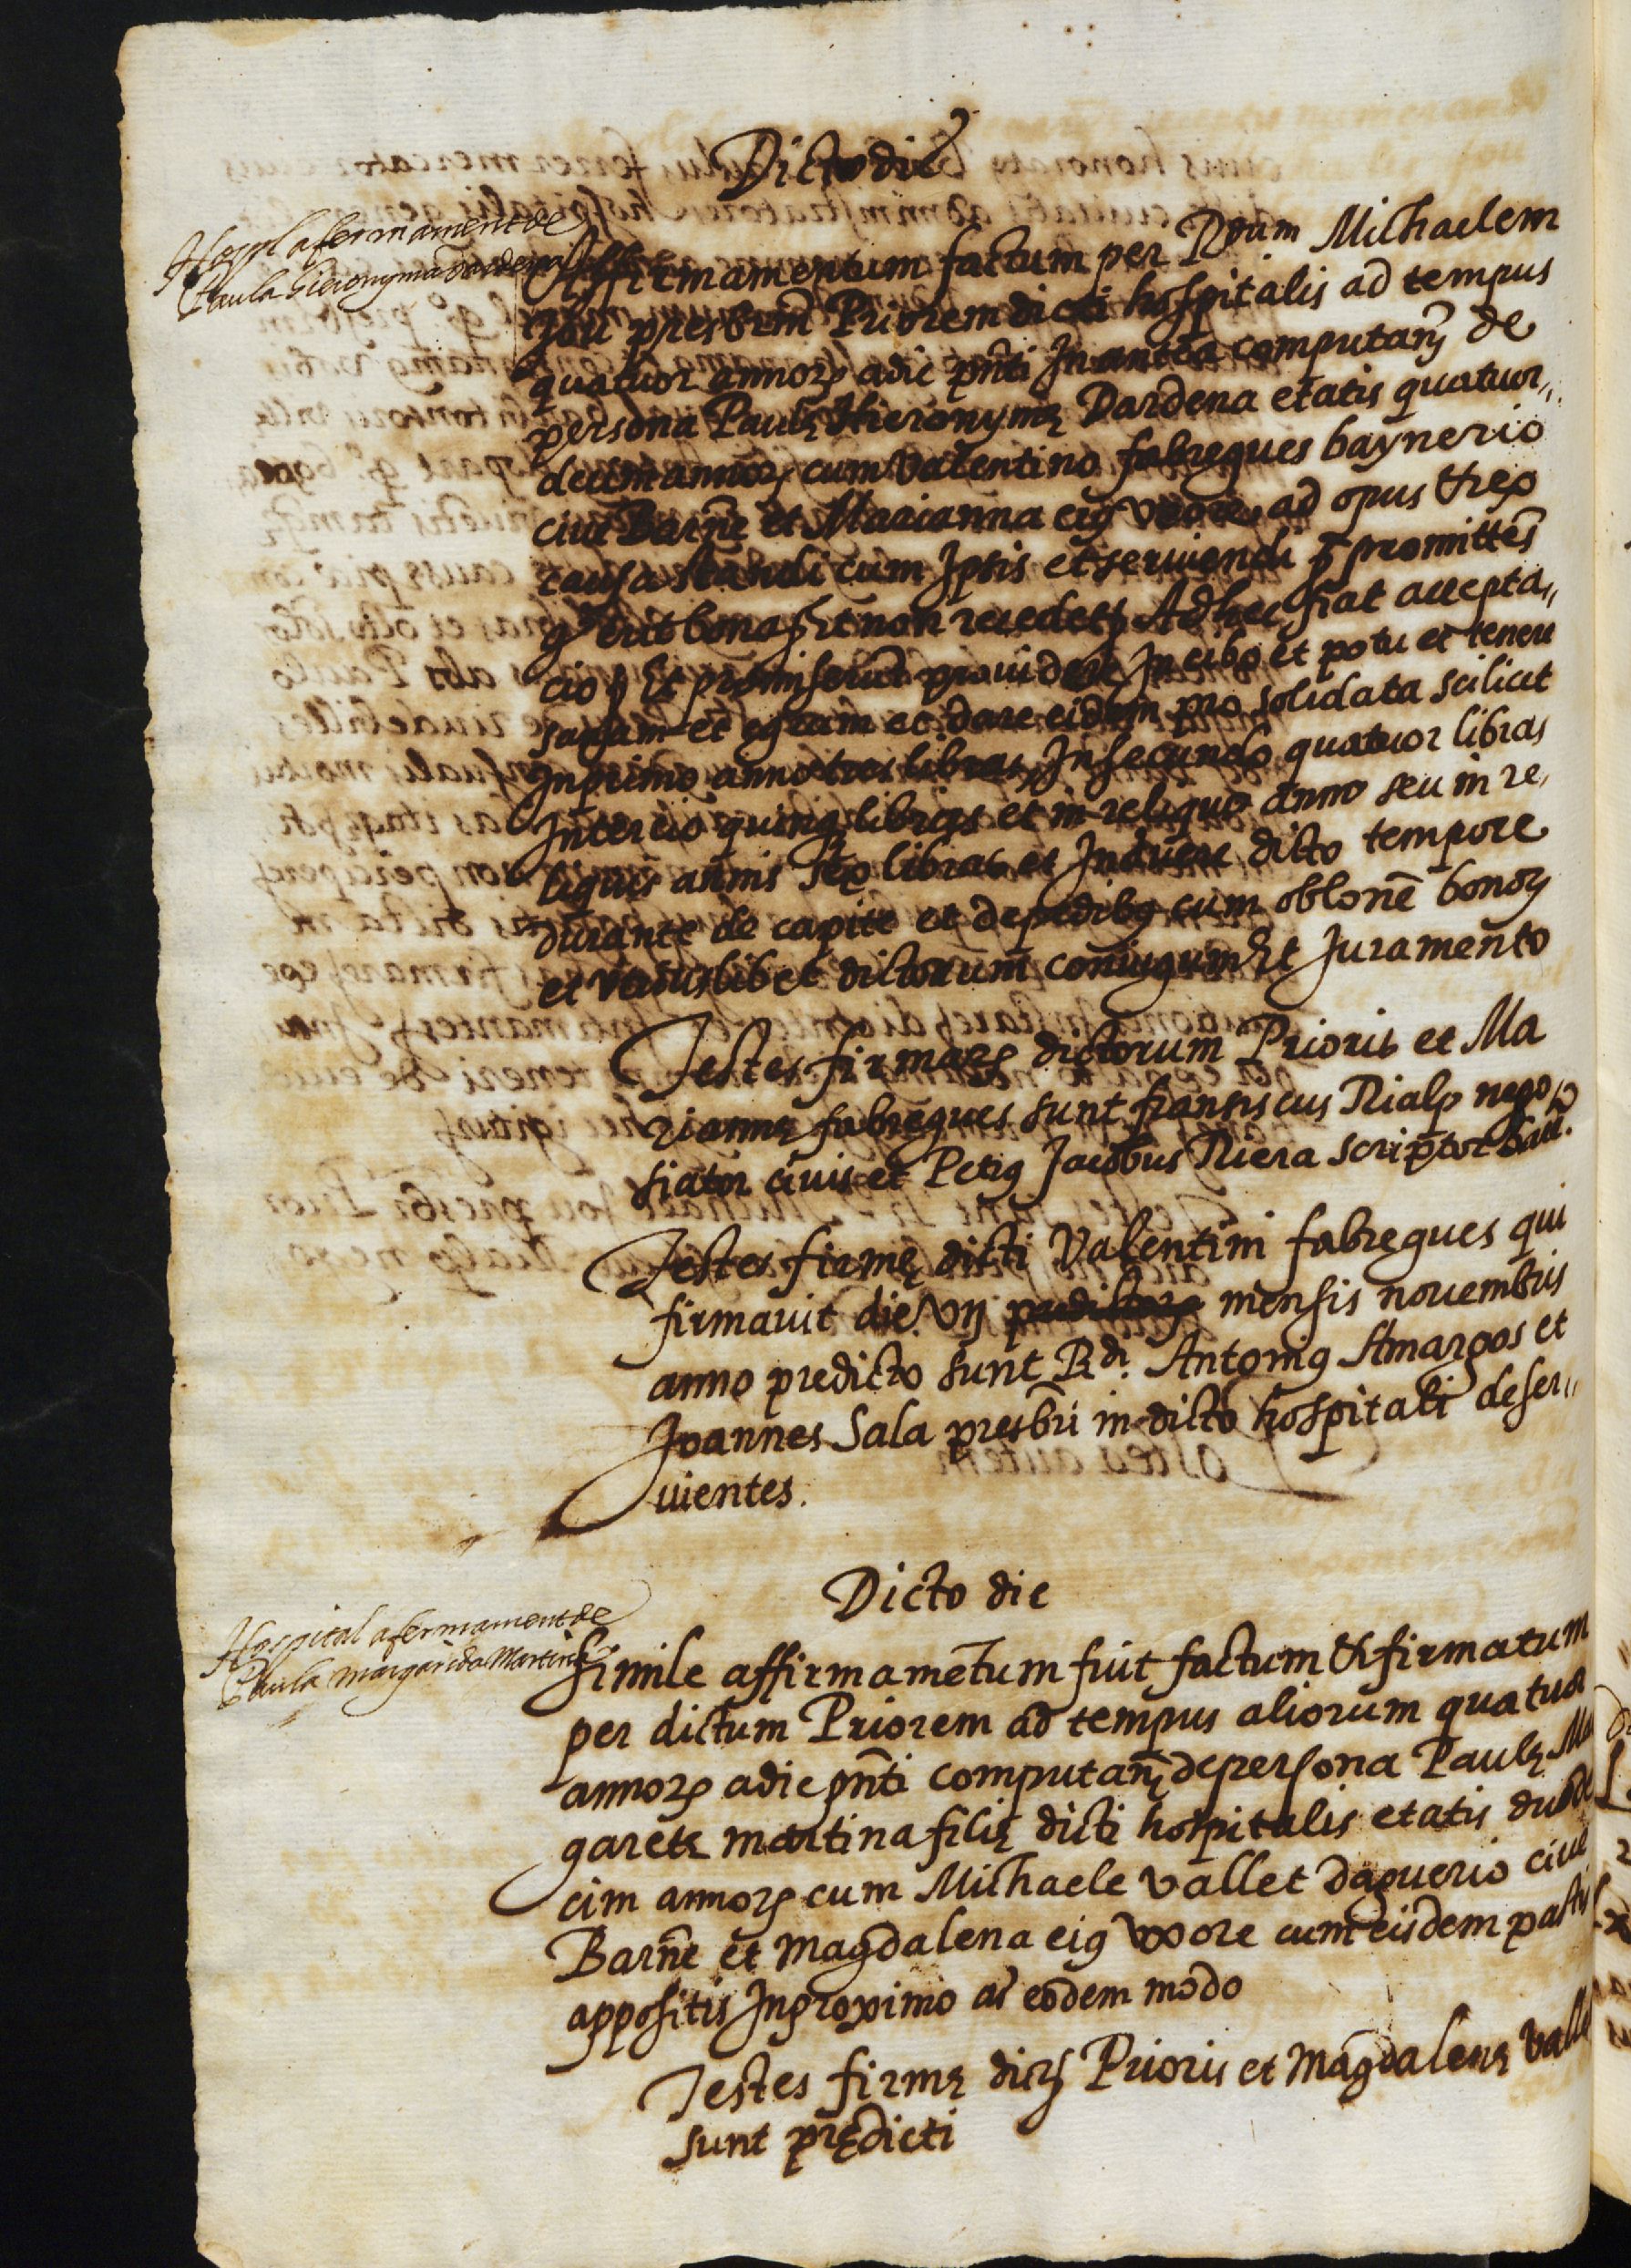 Dicto die
Hospl afermament de
Paula Hieronyma Dardena
Affirmamentum factum per Rdum Michaelem
Jou presbrm Priorem dicti hospitalis ad tempus
quatuor annorꝝ adie pnti In antea computarꝫ de
persona Paulę Hieronymę Dardena etatis quatuor„
decim annorꝝ cum Valentino fabregues baynerio
cive Barne et Marianna eiꝰ uxore ad opus &
causa standi cum Ipsis et serviendi promittes
erit bona Et non recedet Adhec fiat accepta„
cio Et promiserut providere In cibo et potu et tenere
sanam et egram et dare eidem pro solidata scilicet
In primo anno tres libras, In secundo quatuor libras
In tercio quinqꝫ libras et in reliquo anno seu in re„
liquis annis sex libras et Induere dicto tempore
durante de capite et de pedibꝰ cum oblone bonorꝝ
et utriuslibet dictorum coniugum Et Juramento
Testes firmarꝝ dictorum Prioris et Ma
riannę fabregues sunt fransiscus Rialp nego
siator civis et Petrꝰ Jacobus Riera scriptor Barc.
Testes firmę dicti Valentini fabregues qui
firmavit die VII mensis novembris
anno predicto sunt Rdi. Antoniꝰ Amargos et
Joannes Sala presbri in dicto hospitali deser„
vientes.
Dicto die
Hospital afermament de
Paula Margarida Martina
Simile affirmametum fuit factum & firmatum
per dictum Priorem ad tempus aliorum quatuor
annorꝝ adie pnti computarꝫ de persona Paulę Mar
garetę martina filię dicti hospitalis etatis duode
cim annorꝝ cum Michaele vallet daguerio cive
Barne et Magdalena eiꝰ uxore cum eisdem pactis
appositis In proximo ac eodem modo
Testes firmę dictꝝ Prioris et Magdalenę Vallet
sunt prędicti